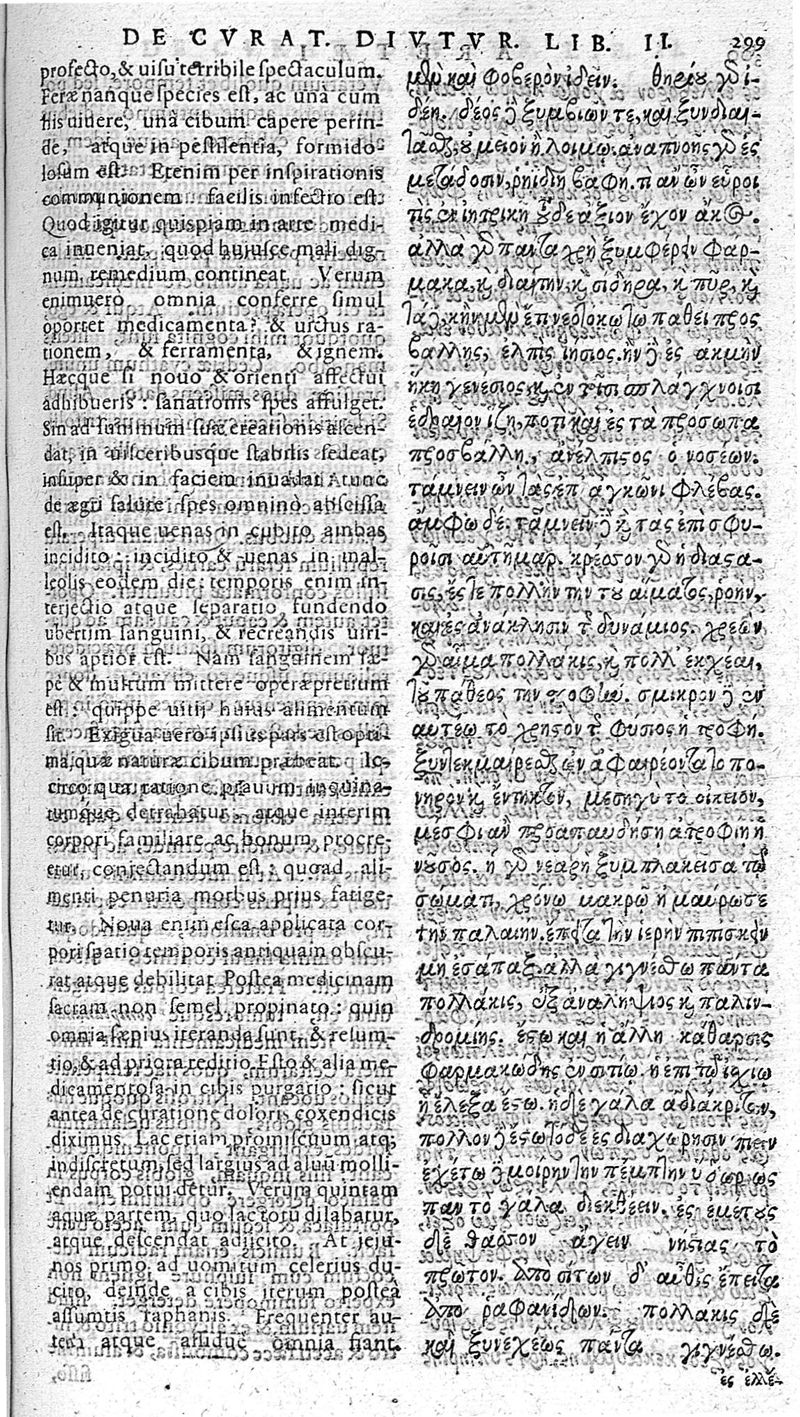 DE CVRAT. DIVTVR. LIB. II. 299
profecto, & uisu terribile spectaculum.
Feræ nanque species est, ac unà cum
illis uiuere, unà cibum capere perin-
de, atque in pestilentia, formido
losum est. Etenim per inspirationis
communionem facilis infectio est.
Quod igitur quispiam in arte medi-
ca inueniat, quod huiusce mali dig-
num remedium contineat. Verum
enimuero omnia conferre simul
oportet medicamenta, & uictus ra-
tionem, & ferramenta, & ignem.
Hæcque si nouo & orienti affectui
adhibueris: sanationis spes affulget.
Sin ad summum suæ creationis ascen-
dat, in uisceribusque stabilis sedeat,
insuper & in faciem inuadat, tunc
de ægri salute spes omnino abscissa
est. Itaque uenas in cubito ambas
incidito: incidito & uenas in mal-
leolis eodem die: temporis enim in-
teriectio atque separatio fundendo
ubertim sanguini, & recreandis uiri-
bus aptior est. Nam sanguinem sæ-
pe & multum mittere operæpretium
est: quippe uitii huius alimentum
sit. Exigua uero ipsius pars est opti-
ma, quæ naturæ cibum præbeat. Ic-
circo qua ratione prauum inquina-
tumque detrahatur, atque interim
corpori familiare ac bonum procre-
etur, coniectandum est: quoad ali-
menti penuria morbus prius fatige-
tur. Noua enim esca applicata cor-
pori spatio temporis antiquam obscu-
rat atque debilitat. Postea medicinam
sacram non semel propinato: quin
omnia sæpius iteranda sunt, & resum-
tio, & ad priora reditio. Esto & alia me-
dicamentosa in cibis purgatio: sicut
antea de curatione doloris coxendicis
diximus. Lac etiam promiscuum atq;
indiscretum, sed largius ad aluū molli-
endam potui detur. Verum quintam
aquæ partem, quo lac totū dilabatur,
atque descendat adiicito. At ieiu-
nos primo ad uomitum celerius du-
cito, deinde a cibis iterum postea
assumtis raphanis. Frequenter au-
tem atque assidue omnia fiant.
μὲν καὶ φοβερὸν ἰδεῖν. θηρίου γὰρ ἰ-
δέη. δέος ἢ ξυμβιοῦν τε, καὶ ξυνδιαι-
τᾶσθ, οὐ μεῖον ἢ λοιμῷ. ἀναπνοῆς γὰρ ἐς
μετάδοσιν, ρηιδίη βαφή. τί ἂν ὦν εὕροι
τὶς ἐν ἰητρικῇ τοῦδε ἄξιον ἔχον ἄκος.
ἀλλὰ γὰρ πάντα χρὴ ξυμφέρειν φάρ-
μακα, καὶ διαιτην, καὶ σίδηρα, καὶ πῦρ, καὶ
τάδε καὶ ἢν μὲν ἔτι νεοτόκῳ τῷ πάθει προς
βάλλης, ἐλπὶς ἰήσιος. ἢν δὲ ἐς ἀκμὴν
ἥκῃ γενέσιος, καὶ ἐν τοῖσι σπλάγχνοισι
ἑδραῖον ἵζῃ, ποτὶ καὶ ἐς τὰ πρόσωπα
προσβάλλη, ἀνέλπιστος ὁ νοσέων.
τάμνειν ὦν τὰς ἐπ᾽ ἀγκῶνι φλέβας.
ἄμφω δέ. τάμνειν δὲ καὶ τὰς ἐπὶ σφυ-
ροῖσι αὐτῆμαρ. κρέσσον γὰρ ἡ διάστα-
σις, ἔς τε πολλὴν τὴν τοῦ αἵματος, ροὴν,
καὶ ἐς ἀνάκλησιν τῆς δυνάμιος. χρεὼν
γὰρ αἷμα πολλάκις, καὶ πολλ᾽ ἐκχέαι,
τοῦ πάθεος τὴν τροφὴν. σμικρὸν δὲ ἐν
αὐτέῳ τὸ χρηστὸν τῆς φύσιος ἡ τροφή.
ξυντεκμαίρεσθ ὦν ἀφαιρέοντα τὸ πο-
νηρὸν καὶ ἔντηκτον, μεσηγὺ τὸ οἰκεῖον,
μέσφι ἂν προαπαυδήσῃ ἀτροφίῃ ἡ
νοῦσος. ἡ γὰρ νεαρὴ ξυμπλακεῖσα τῷ
σώματι, χρόνῳ μακρῷ ἠμαύρωσε
τὴν παλαιήν. ἔπειτα τὴν ἱερὴν πιπίσκειν
μὴ ἐσάπαξ. ἀλλὰ γιγνέσθω πάντα
πολλάκις, ἐξ ἀναλήψιος καὶ παλιν-
δρομίης. ἔστω καὶ ἡ ἄλλη κάθαρσις
φαρμακώδης ἐν σιτίῳ. ἢ ἐπὶ τῷ ἰσχίῳ
ἢ ἔλεξα ἔστω. ἠδὲ γάλα ἀδιάκριτον,
πολλὸν δὲ ἔστω τόδε ἐς διαχώρησιν πιεῖν
ἐχέτω δὲ μοίρην τὴν πέμπτην ὕδωρ ὡς
πᾶν τὸ γάλα διεκθέειν. ἐς ἐμέτους
δὲ θᾶττον ἄγειν νήστιας τὸ
πρῶτον. ἀπὸ σίτων δ᾽ αὖθις ἔπειτα
ἀπὸ ῥαφανίδων. πολλάκις δὲ
καὶ ξυνεχέως πάντα γιγνέσθω.
ἐς ἐλλέ-